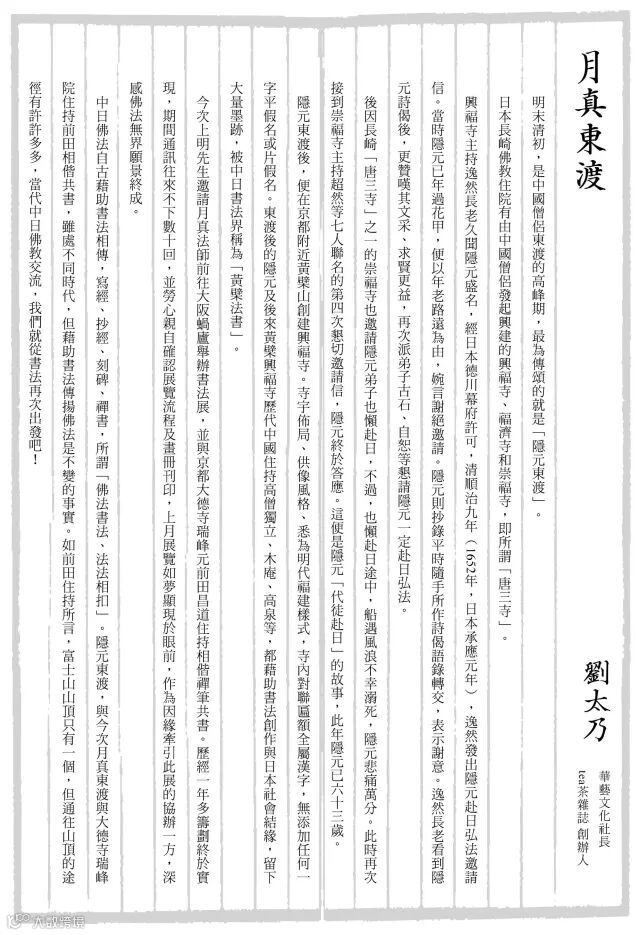 月真東渡
劉太乃
華藝文化社長
tea茶雜誌 創辦人
明末清初，是中國僧侶東渡的高峰期，最為傳頌的就是「隱元東渡」。
日本長崎佛教住院有由中國僧侶發起興建的興福寺、福濟寺和崇福寺，即所謂「唐三寺」。
興福寺主持逸然長老久聞隱元盛名，經日本德川幕府許可，清順治九年（1652年，日本承應元年），逸然發出隱元赴日弘法邀請
信。當時隱元已年過花甲，便以年老路遠為由，婉言謝絕邀請。隱元則抄錄平時隨手所作詩偈語錄轉交，表示謝意。逸然長老看到隱
元詩偈後，更贊嘆其文采、求賢更益，再次派弟子古石、自恕等懇請隱元一定赴日弘法。
後因長崎「唐三寺」之一的崇福寺也邀請隱元弟子也懶赴日，不過，也懶赴日途中，船遇風浪不幸溺死，隱元悲痛萬分。此時再次
接到崇福寺主持超然等七人聯名的第四次懇切邀請信，隱元終於答應。這便是隱元「代徒赴日」的故事，此年隱元已六十三歲。
隱元東渡後，便在京都附近黃檗山創建興福寺。寺宇佈局、供像風格、悉為明代福建樣式，寺內對聯匾額全屬漢字，無添加任何一
字平假名或片假名。東渡後的隱元及後來黃檗興福寺歷代中國住持高僧獨立、木庵、高泉等，都藉助書法創作與日本社會結緣，留下
大量墨跡，被中日書法界稱為「黃檗法書」。
今次上明先生邀請月真法師前往大阪蝸廬舉辦書法展，並與京都大德寺瑞峰元前田昌道住持相偕禪筆共書。歷經一年多籌劃終於實
現，期間通訊往來不下數十回，並勞心親自確認展覽流程及畫冊刊印，上月展覽如夢顯現於眼前，作為因緣牽引此展的協辦一方，深
感佛法無界願景終成。
中日佛法自古藉助書法相傳，寫經、抄經、刻碑、禪書，所謂「佛法書法、法法相扣」。隱元東渡，與今次月真東渡與大德寺瑞峰
院住持前田相偕共書，雖處不同時代，但藉助書法傳揚佛法是不變的事實。如前田住持所言，富士山山頂只有一個，但通往山頂的途
徑有許許多多，當代中日佛教交流，我們就從書法再次出發吧！
大數跨境